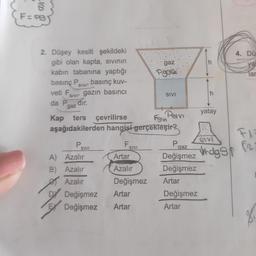 F = PS
2. Düşey kesiti şekildeki
gibi olan kapta, sıvının
kabın tabanına yaptığı
basınç Psıvı, basınç kuv-
veti Fsıvı, gazın basıncı
da Pgaz dır.
Kap ters çevrilirse
aşağıdakilerden hangisi gerçekleşir?
gaz
h
sıvı
h
yatay
Psıvı Fsıvı Pgaz
A) Azalır Artar Değişmez
B) Azalır Azalır Değişmez
C) Azalır Değişmez Artar
D) Değişmez Artar Değişmez
E) Değişmez Artar Artar
4. Dü